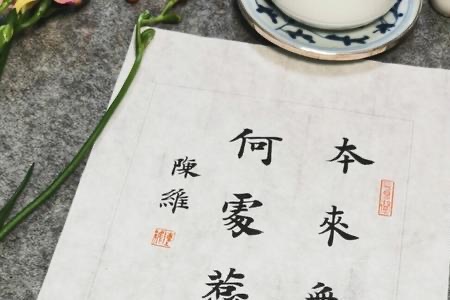 本來無
何處惹
陳維